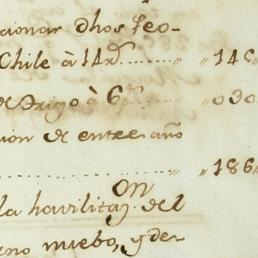 cionar dhos seo-
Chile à 14 r.s ........ " 14
de Trigo à 6 p.s ..... " 030
ion de entre año
................... " 186
la havilitaz.on del
eno nuebo, y de-